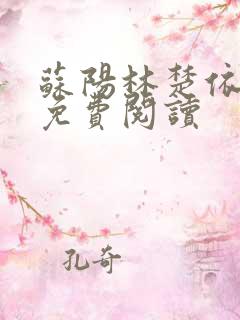 蘇陽林楚依
免費閱讀
孔奇